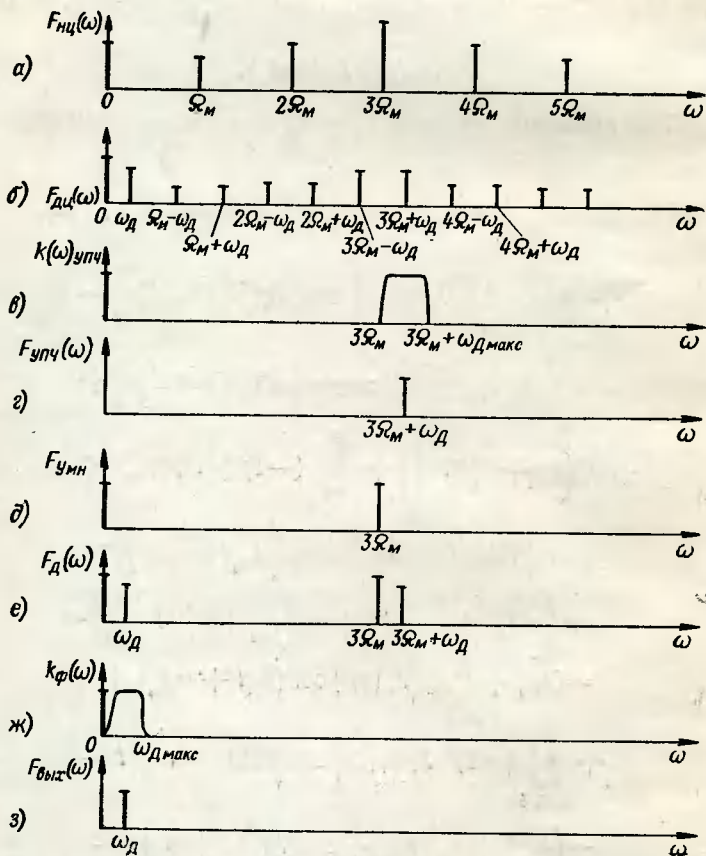 Fнц(ω)
а)
0 Ωм 2Ωм 3Ωм 4Ωм 5Ωм ω
б) Fдц(ω)
0 ωд Ωм−ωд 2Ωм−ωд 2Ωм+ωд 3Ωм+ωд 4Ωм−ωд ω
Ωм+ωд 3Ωм−ωд 4Ωм+ωд
k(ω)упч
в)
3Ωм 3Ωм+ωд макс ω
Fупч(ω)
г)
3Ωм+ωд ω
Fумн
д)
3Ωм ω
Fд(ω)
е)
ωд 3Ωм 3Ωм+ωд ω
kф(ω)
ж)
0 ωд макс ω
Fвых(ω)
з)
ωд ω